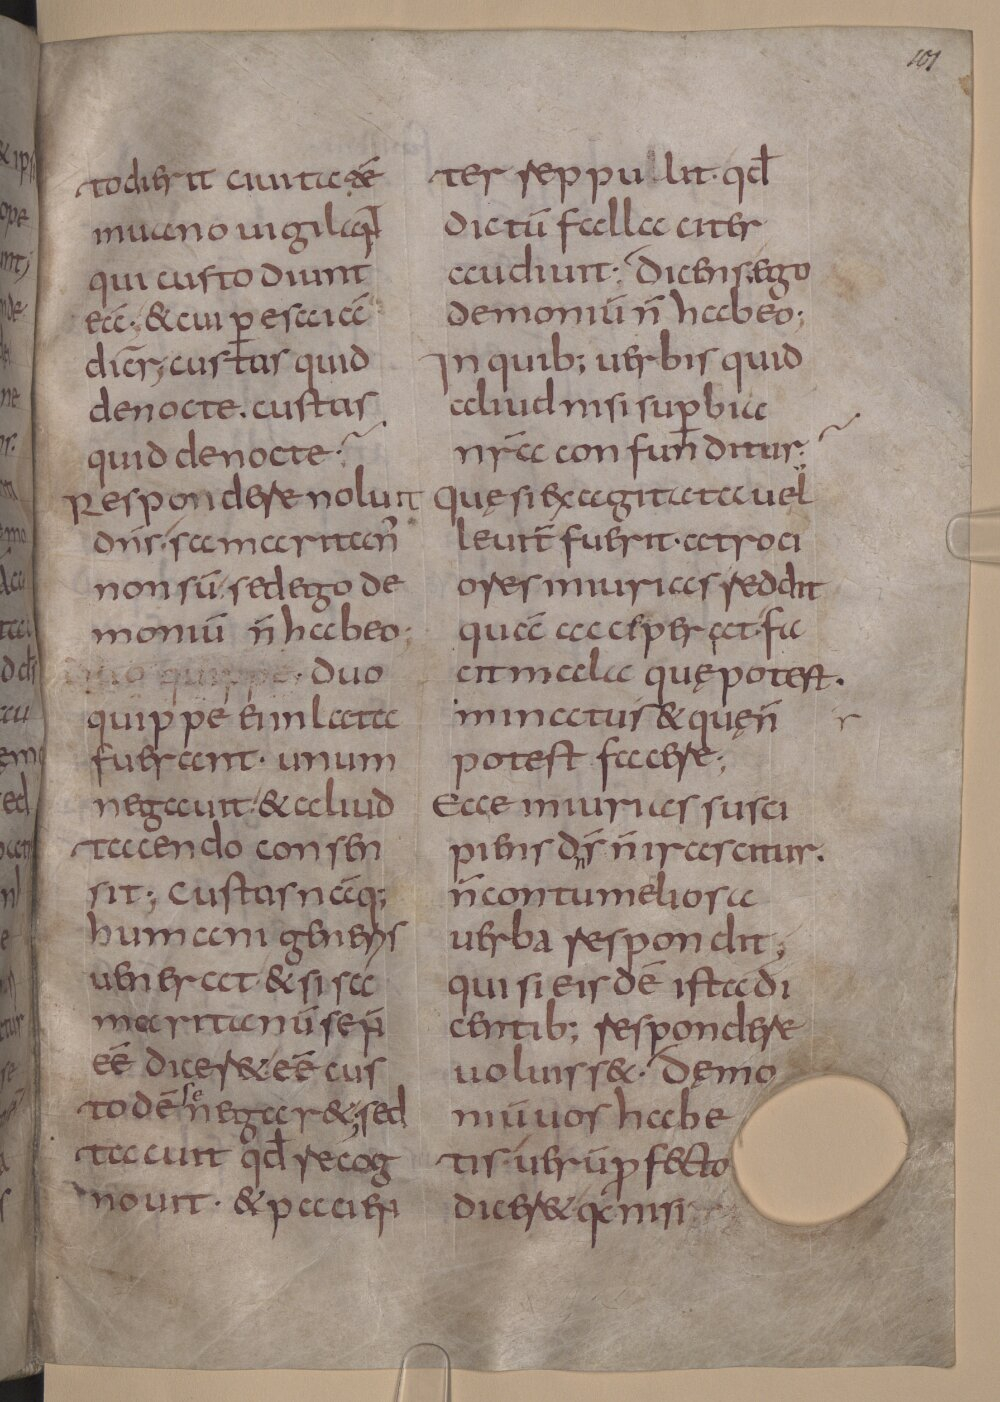 101
todierit ciuitatē
in uano uigilat q̄
qui custodiunt
eā; & cui ꝑ esaiā
dicit; custos quid
de nocte. custos
quid de nocte;
Respondere noluit
dñs. samaritan᾽
non sū. sed ego de
moniū ñ habeo;
duo quippe. duo
quippe ei inlata
fuerant. unum
negauit & aliud
tacendo consen
sit; Custos nāq;
humani generis
uenerat & si sa
maritanū se ñ
eē dicer& eē cus
todē se negar&; sed
tacuit qđ recog
nouit. & pacien
ter reppulit. qđ
dictū fallaciter
audiuit; Dicens. ego
demoniū ñ habeo;
In quib; uerbis quid
aliud nisi suꝑbia
nr̄a confunditur;
Quę si exagitata uel
leuit̄ fuerit. atroci
ores iniurias reddit
quā acceperat. fa
cit mala quę potest.
minatur & quę ñ
potest facere;
Ecce iniurias susci
piens dñs ñ irascitur.
ñ contumeliosa
uerba respondit;
qui si eisdē ista di
centib; respondere
uoluiss&. Dęmo
niū uos habe
tis. uerū ꝓfecto
dicer&. qa nisi